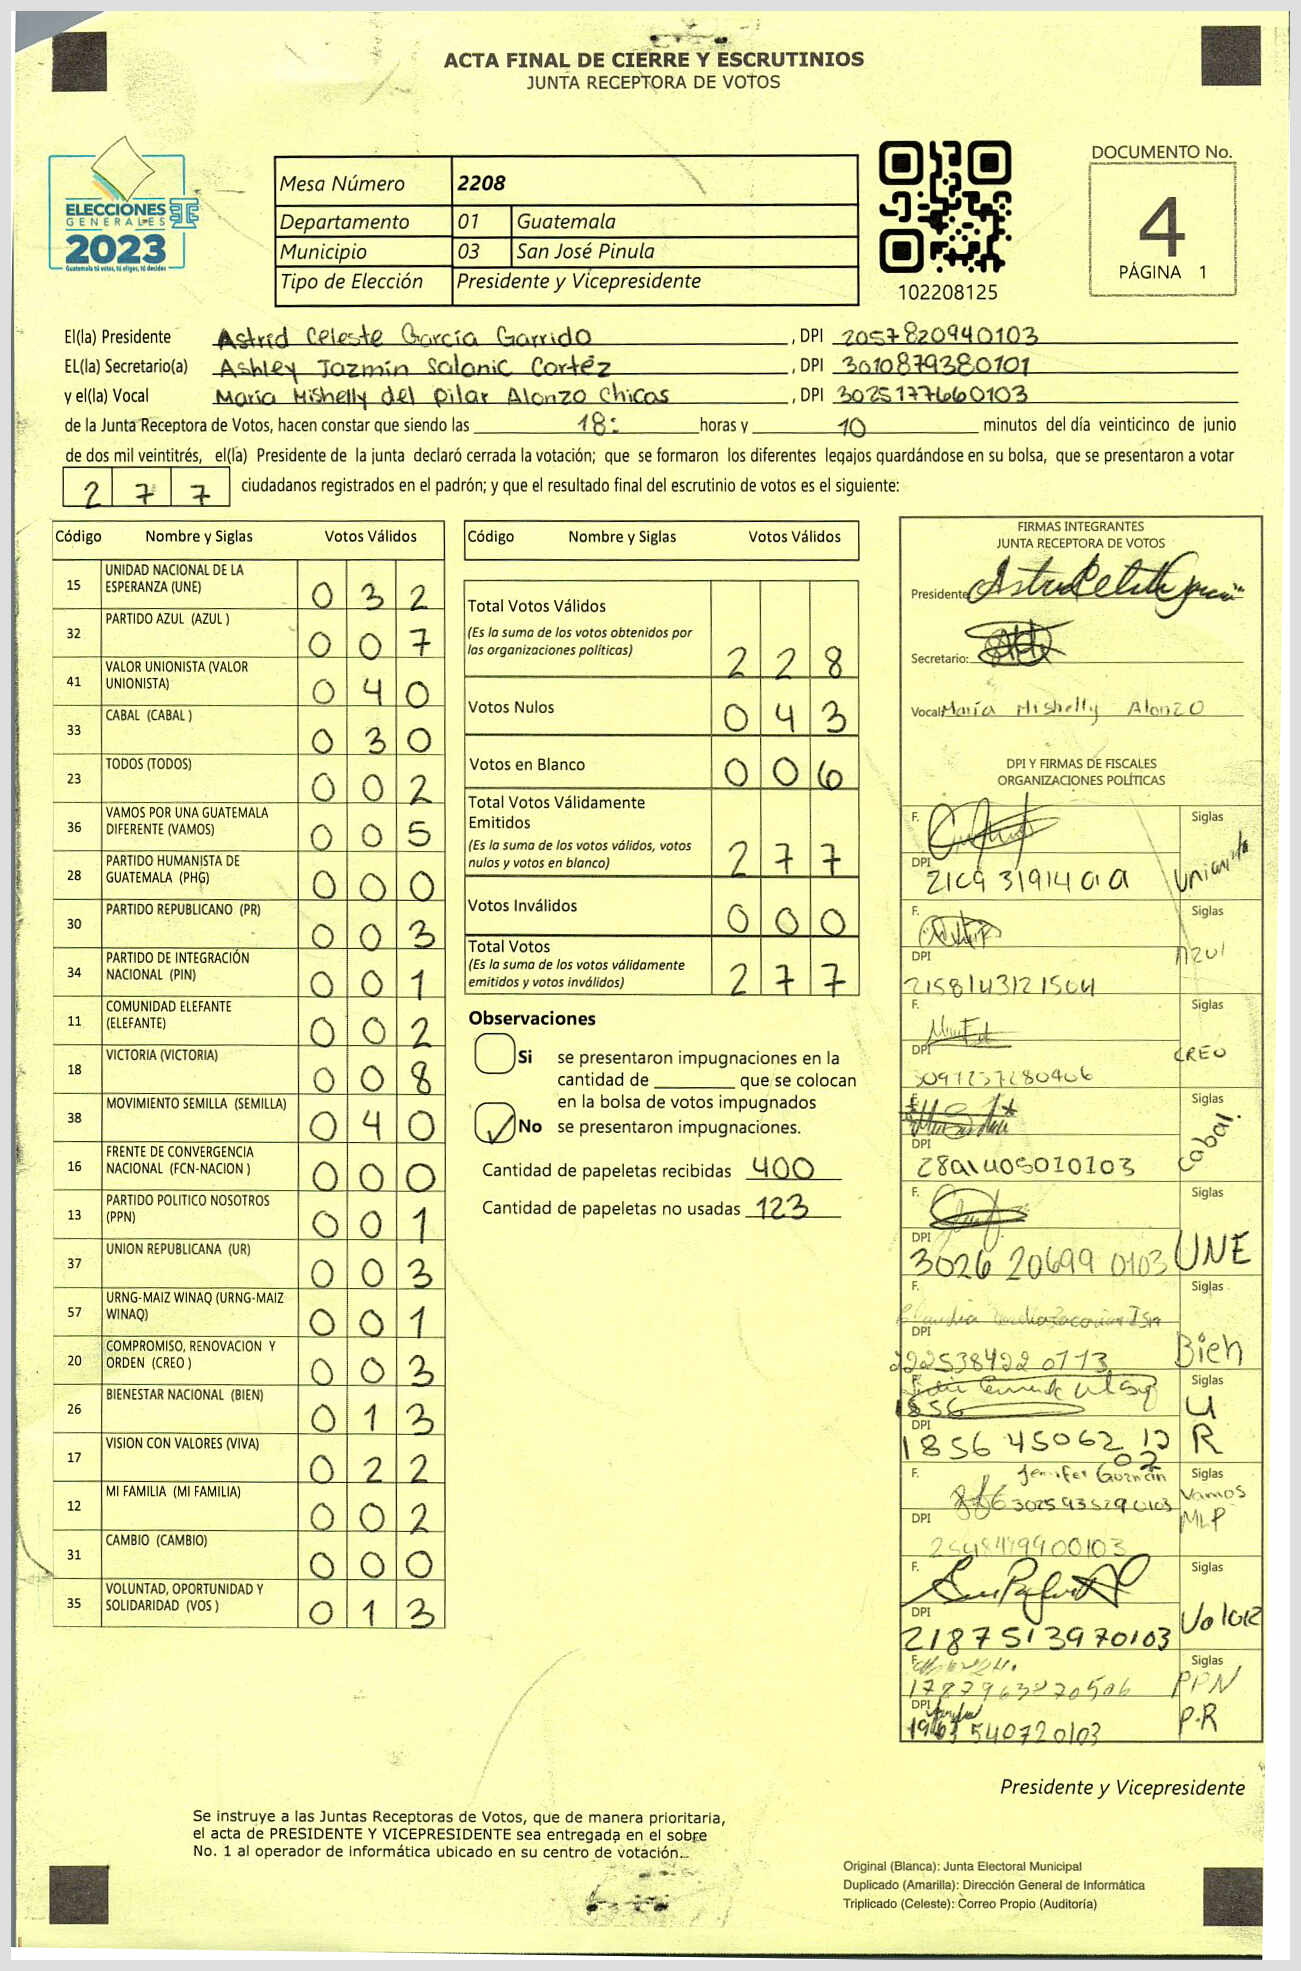 ACTA FINAL DE CIERRE Y ESCRUTINIOS
JUNTA RECEPTORA DE VOTOS
ELECCIONES
GENERALES
2023
Guatemala tú votas, tú eliges, tú decides
Mesa Número 2208
Departamento 01 Guatemala
Municipio 03 San José Pinula
Tipo de Elección Presidente y Vicepresidente
102208125
DOCUMENTO No.
4
PÁGINA 1
El(la) Presidente Astrid Celeste García Garrido, DPI 2057820940103
EL(la) Secretario(a) Ashley Jazmín Salanic Cortéz, DPI 3010879380101
y el(la) Vocal María Mishelly del Pilar Alonzo Chicas, DPI 3025177660103
de la Junta Receptora de Votos, hacen constar que siendo las 18: horas y 10 minutos del día veinticinco de junio
de dos mil veintitrés, el(la) Presidente de la junta declaró cerrada la votación; que se formaron los diferentes legajos guardándose en su bolsa, que se presentaron a votar
277 ciudadanos registrados en el padrón; y que el resultado final del escrutinio de votos es el siguiente:
Código Nombre y Siglas Votos Válidos
15 UNIDAD NACIONAL DE LA ESPERANZA (UNE) 032
32 PARTIDO AZUL (AZUL ) 007
41 VALOR UNIONISTA (VALOR UNIONISTA) 040
33 CABAL (CABAL ) 030
23 TODOS (TODOS) 002
36 VAMOS POR UNA GUATEMALA DIFERENTE (VAMOS) 005
28 PARTIDO HUMANISTA DE GUATEMALA (PHG) 000
30 PARTIDO REPUBLICANO (PR) 003
34 PARTIDO DE INTEGRACIÓN NACIONAL (PIN) 001
11 COMUNIDAD ELEFANTE (ELEFANTE) 002
18 VICTORIA (VICTORIA) 008
38 MOVIMIENTO SEMILLA (SEMILLA) 040
16 FRENTE DE CONVERGENCIA NACIONAL (FCN-NACION ) 000
13 PARTIDO POLITICO NOSOTROS (PPN) 001
37 UNION REPUBLICANA (UR) 003
57 URNG-MAIZ WINAQ (URNG-MAIZ WINAQ) 001
20 COMPROMISO, RENOVACION Y ORDEN (CREO ) 003
26 BIENESTAR NACIONAL (BIEN) 013
17 VISION CON VALORES (VIVA) 022
12 MI FAMILIA (MI FAMILIA) 002
31 CAMBIO (CAMBIO) 000
35 VOLUNTAD, OPORTUNIDAD Y SOLIDARIDAD (VOS ) 013
Código Nombre y Siglas Votos Válidos
Total Votos Válidos
(Es la suma de los votos obtenidos por
las organizaciones políticas) 228
Votos Nulos 043
Votos en Blanco 006
Total Votos Válidamente
Emitidos
(Es la suma de los votos válidos, votos
nulos y votos en blanco) 277
Votos Inválidos 000
Total Votos
(Es la suma de los votos válidamente
emitidos y votos inválidos) 277
Observaciones
Si se presentaron impugnaciones en la
cantidad de ________ que se colocan
en la bolsa de votos impugnados
No se presentaron impugnaciones.
Cantidad de papeletas recibidas 400
Cantidad de papeletas no usadas 123
FIRMAS INTEGRANTES
JUNTA RECEPTORA DE VOTOS
Presidente:
Secretario:
Vocal: María Mishelly Alonzo
DPI Y FIRMAS DE FISCALES
ORGANIZACIONES POLÍTICAS
F. Siglas
DPI Unionista
F. Siglas
DPI Azul
F. Siglas
DPI CREO
Siglas
DPI Cabal.
F. Siglas
DPI 3026 20699 0103 UNE
Siglas
DPI Bien
2225384220113
F. Siglas
DPI U
1856 45062 R
F. Jennifer Guzmán Siglas
3025935290103 Vamos
DPI MLP
F. Siglas
DPI Valor
2187513970103
F. Siglas
PPN
DPI
1963 540720103 P.R
Presidente y Vicepresidente
Se instruye a las Juntas Receptoras de Votos, que de manera prioritaria,
el acta de PRESIDENTE Y VICEPRESIDENTE sea entregada en el sobre
No. 1 al operador de informática ubicado en su centro de votación.
Original (Blanca): Junta Electoral Municipal
Duplicado (Amarilla): Dirección General de Informática
Triplicado (Celeste): Correo Propio (Auditoría)